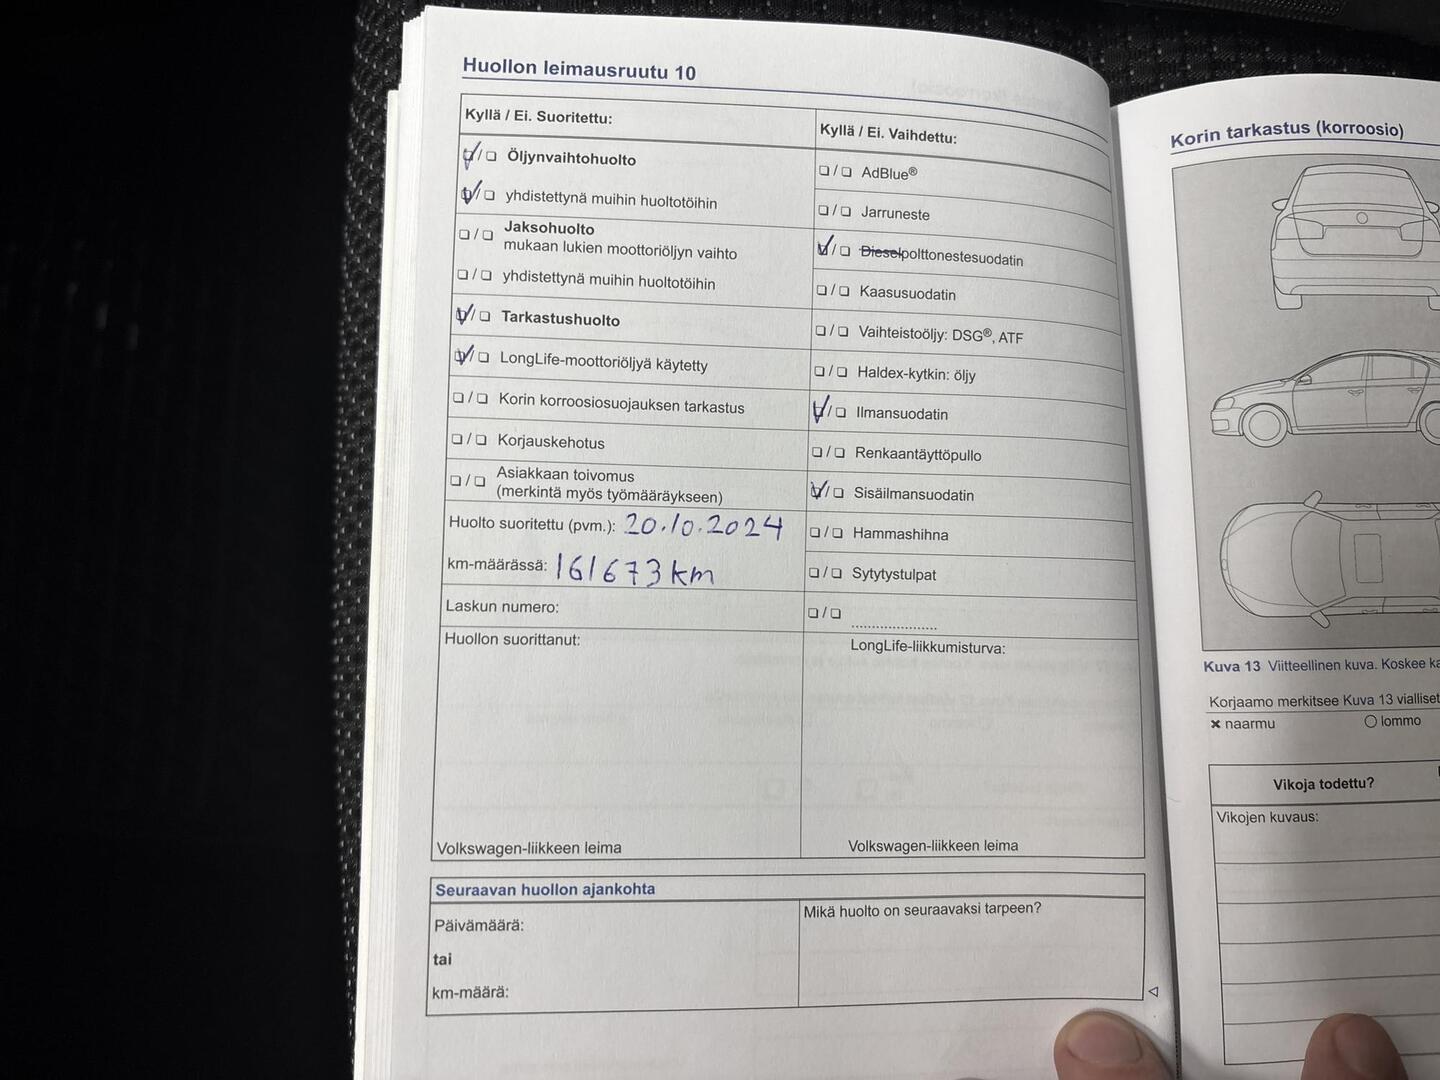 Huollon leimausruutu 10
Kyllä / Ei. Suoritettu:
Öljynvaihtohuolto
yhdistettynä muihin huoltotöihin
Jaksohuolto
mukaan lukien moottoriöljyn vaihto
yhdistettynä muihin huoltotöihin
Tarkastushuolto
LongLife-moottoriöljyä käytetty
Korin korroosiosuojauksen tarkastus
Korjauskehotus
Asiakkaan toivomus
(merkintä myös työmääräykseen)
Huolto suoritettu (pvm.): 20.10.2024
km-määrässä: 161673 km
Laskun numero:
Huollon suorittanut:
Volkswagen-liikkeen leima
Kyllä / Ei. Vaihdettu:
AdBlue®
Jarruneste
Dieselpolttonestesuodatin
Kaasusuodatin
Vaihteistoöljy: DSG®, ATF
Haldex-kytkin: öljy
Ilmansuodatin
Renkaantäyttöpullo
Sisäilmansuodatin
Hammashihna
Sytytystulpat
LongLife-liikkumisturva:
Volkswagen-liikkeen leima
Seuraavan huollon ajankohta
Päivämäärä:
tai
km-määrä:
Mikä huolto on seuraavaksi tarpeen?
Korin tarkastus (korroosio)
Kuva 13 Viitteellinen kuva. Koskee
Korjaamo merkitsee Kuva 13 vialliset
naarmu
lommo
Vikoja todettu?
Vikojen kuvaus: